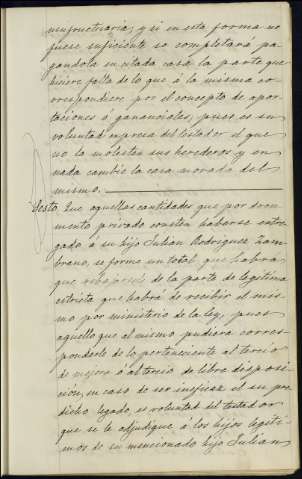 usufructuaria, y si en esta forma no
fuese suficiente se completará pa
gandola en tada casa la parte que
hiciere falta de lo que á la misma co
rrespondiere por el concepto de apor
taciones ó gananciales, pues es su
voluntad expresa del testador el que
no la molesten sus herederos y en
nada cambie la casa morada del
mismo.
Sesto. Que aquellas cantidades que por docu
mento privado consten haberse entre
gado á su hijo Julian Rodriguez Zam
brano, se forme un total que habrá
que rebajarsele de la parte de legitima
estricta que habrá de recibir el mis
mo por ministerio de la ley, pues
aquello que al mismo pudiera corres
ponderle de lo perteneciente al tercio
de mejora ó al tercio de libre disposi
cion, en caso de ser ineficaz el su pre
dicho legado es voluntad del testador
que se le adjudique á los hijos legiti
mos de su mencionado hijo Julian